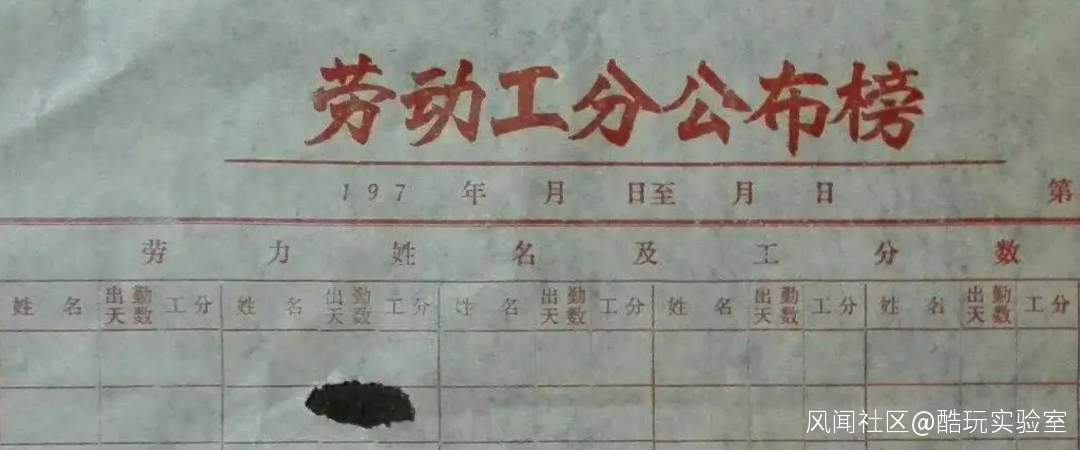 劳动工分公布榜
197 年 月 日至 月 日 第
劳力姓名及工分数
姓名 出勤天数 工分 姓名 出勤天数 工分 姓名 出勤天数 工分 姓名 出勤天数 工分 姓名 出勤天数 工分
风闻社区@酷玩实验室